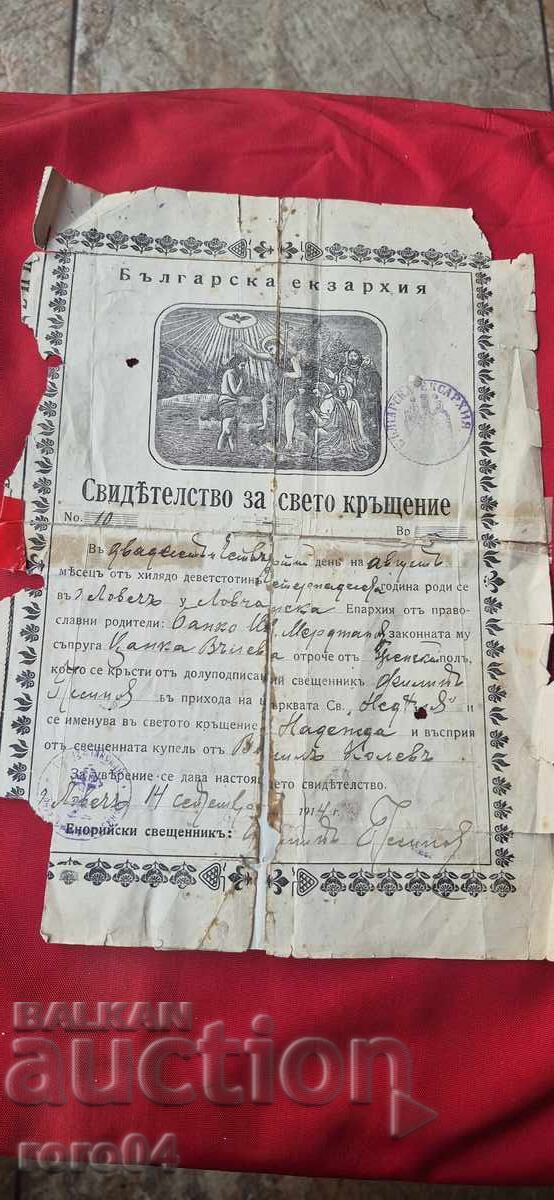 Българска екзархия
БЪЛГАРСКА ЕКСАРХИЯ
Свидѣтелство за свето кръщение
No. 10 Вр
Въ двадесетъ и четвъртий день на августъ
мѣсец отъ хилядо деветстотинъ четиринадесета година роди се
въ г. Ловечъ у Ловчанска Епархия отъ право-
славни родители: Банко законната му
съпруга Цанка Вълева отроче отъ женски полъ,
което се кръсти отъ долуподписаний свещенникъ Филипъ
въ прихода на църквата Св. „Неделя" и
се именува въ светото кръщение Надежда и въсприе
отъ свещенната купель отъ Колевъ
За увѣрение се дава настоящето свидѣтелство.
г. Ловечъ 14 септемврий 1914 г.
Енорийски свещенникъ: Филипъ
BALKAN
auction
roro04